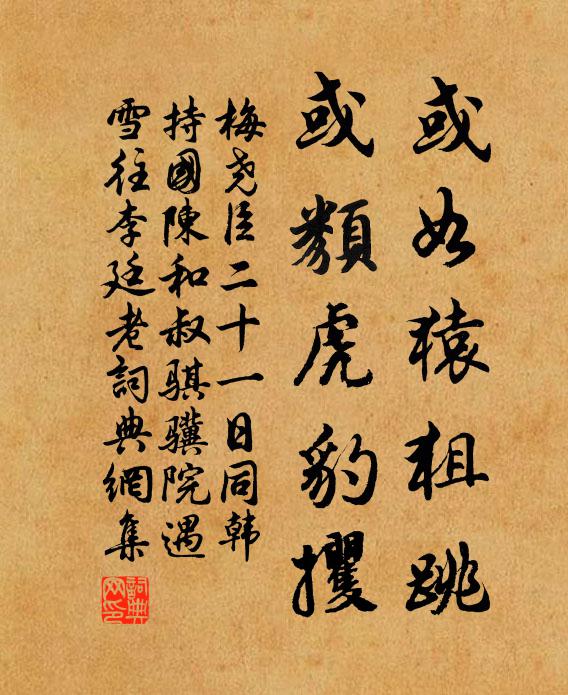 或如猿狙跳
或類虎豹攫
梅堯臣二十一日同韓
持國陳和叔騏驥院遇
雪往李廷老詞典網集
詞典
网印